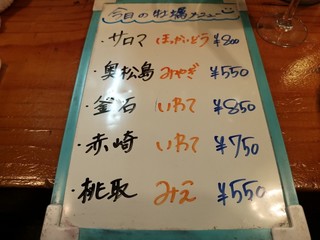 今日の牡蠣メニュー
・サロマ ほっかいどう ¥800
・奥松島 みやぎ ¥550
・釜石 いわて ¥850
・赤崎 いわて ¥750
・桃取 みえ ¥550